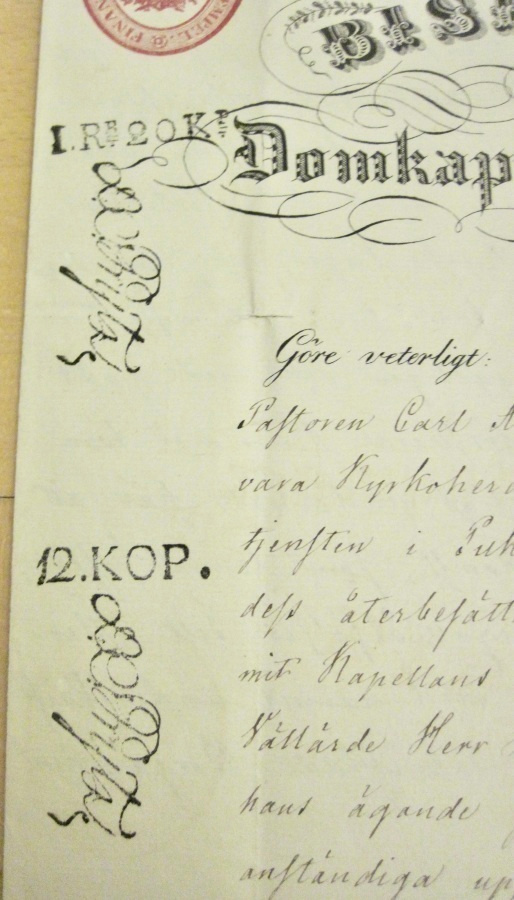 STEMPEL. & FINAN
BIS
I. Rᴮᴸ 20 Kᴾ
Domkap
Göre veterligt:
Pastoren Carl A
vara Kyrkoher
tjensten i
12. KOP.
dess återbesätt
mit Kapellans
Vällärde Herr
hans ägande
anständiga up